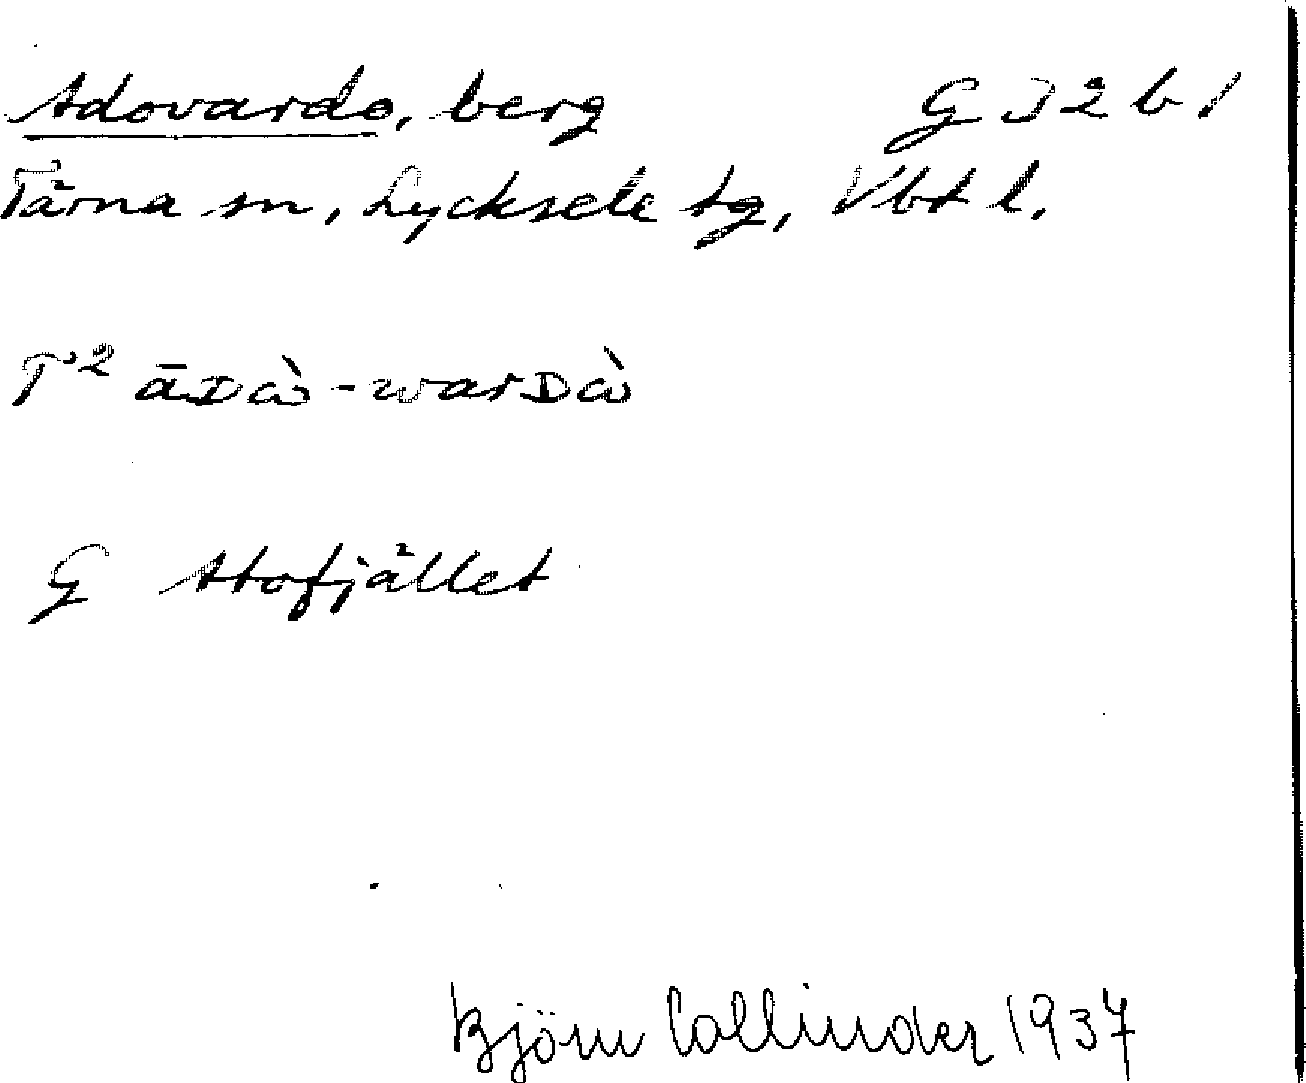 Adovardo, berg G I 2 b 1
Tärna sn, Lycksele tg, Vbt l.
T² āᴅὼ-warᴅὼ
G Atofjället
Björn Collinder 1937